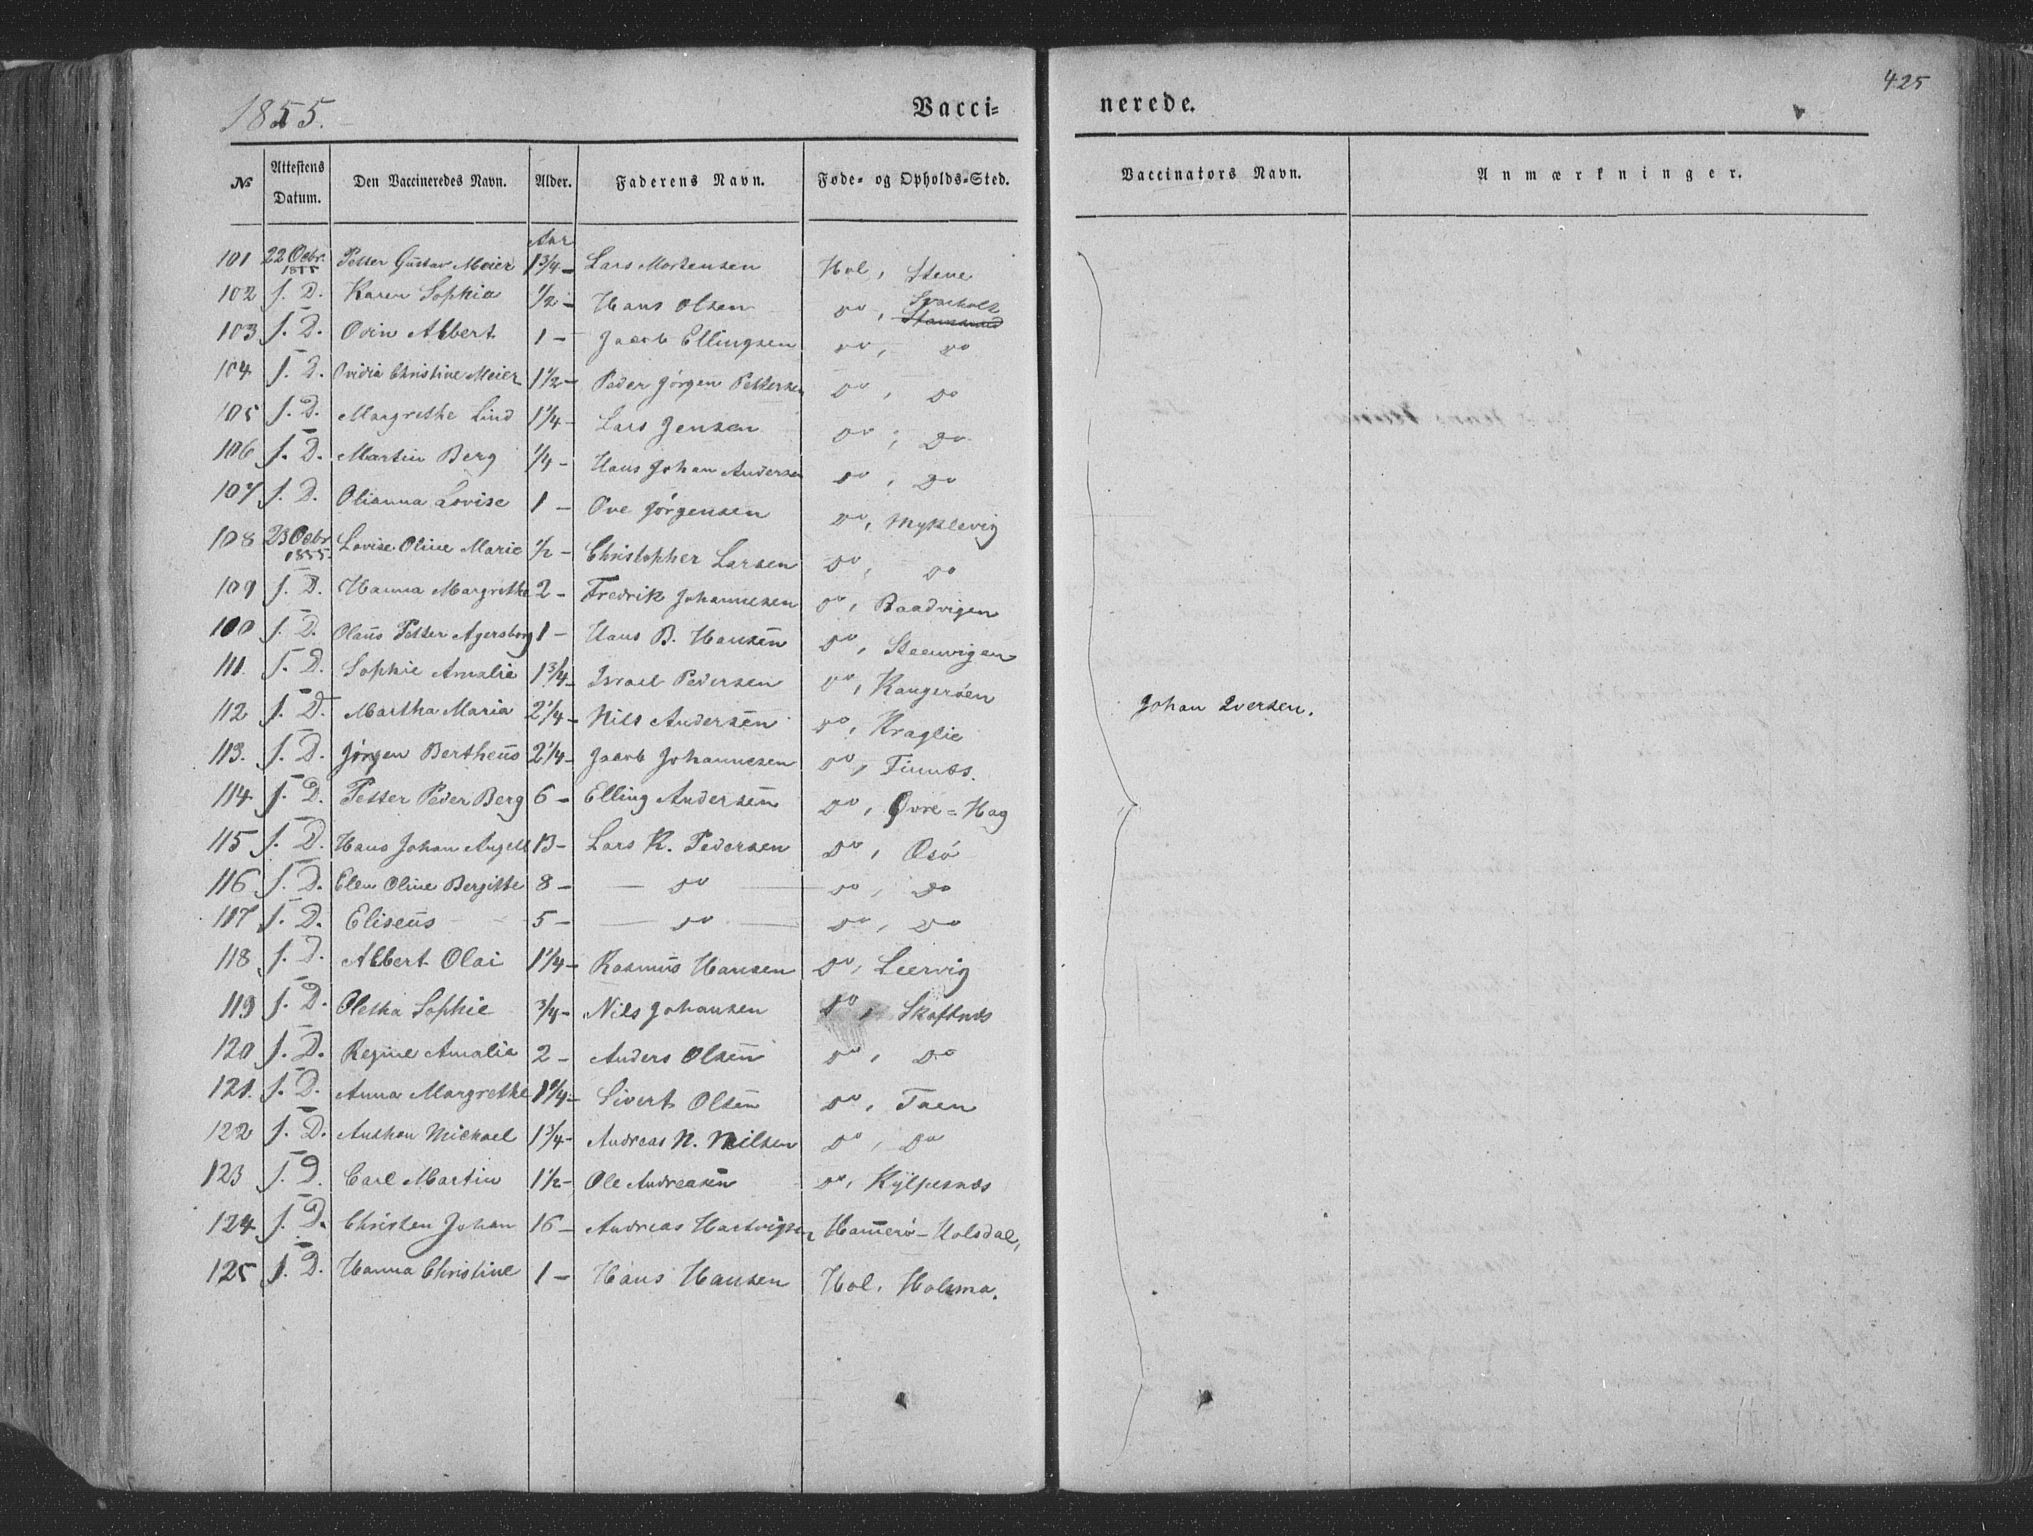 425
1855.
Vacci=
nerede.
№ Attestens Datum. Den Vaccineredes Navn. Alder. Faderens Navn. Føde- og Opholds-Sted. Vaccinators Navn. Anmærkninger.
Aar
101 22 Octbr. 1855 Petter Gustav Meier 1 3/4 - Lars Mortensen Hol, Stene
102 s. D. Karen Sophia 1/2 - Hans Olsen Do,
103 s. D. Odin Albert 1 - Jacob Ellingsen Do, Do
104 s. D. Ovidia Christine Meier 1 1/2 - Peder Jørgen Pettersen Do, Do
105 s. D. Margrethe Lind 1 1/4 - Lars Jensen Do, Do
106 s. D. Martin Berg 1/4 - Hans Johan Andersen Do, Do
107 s. D. Olianna Lovise 1 - Ove Jørgensen Do, Myklevig
108 23 Octbr 1855 Lovise Oline Marie 1/2 - Christopher Larsen Do, Do
109 s. D. Hanna Margrethe 2 - Fredrik Johannesen Do, Baadvigen
100 s. D. Olaus Petter Agersborg 1 - Hans B. Hansen Do, Steenvigen
111. s. D. Sophie Amalie 1 3/4 - Israel Pedersen Do, Kangerøen
112 s. D. Martha Maria 2 1/4 - Nils Andersen Do, Kraglie
113. s. D. Jørgen Bertheus 2 1/4 - Jacob Johannesen Do,
114 s. D. Petter Peder Berg 6 - Elling Andersen Do, Øvre=Hag
115 s. D. Hans Johan Angell 13 - Lars K. Pedersen Do,
116 s. D. Elen Oline Bergitte 8 - Do Do, Do
117 s. D. Eliseus 5 - Do Do, Do
118 s. D. Albert Olai 1 1/4 - Rasmus Hansen Do, Leervig
119 s. D. Oletha Sophie 3/4 - Nils Johansen Do, Skaftnes
120 s. D. Regine Amalia 2 - Anders Olsen Do, Do
121. s. D. Anna Margrethe Sivert Olsen Do, Taen
122 s. D. Anthon Michael 1 3/4 - Andreas N. Nilsen Do, Do
123 s. D. Carl Martin 1 1/2 - Ole Andreasen Do, Kylpesnes
124 s. D. Christen Johan 16 - Andreas Hartvigsen Hamerø - Holsdal,
125 s. D. Hanna Christine 1 - Hans Hansen Hol, Holsma.
Johan Iversen.